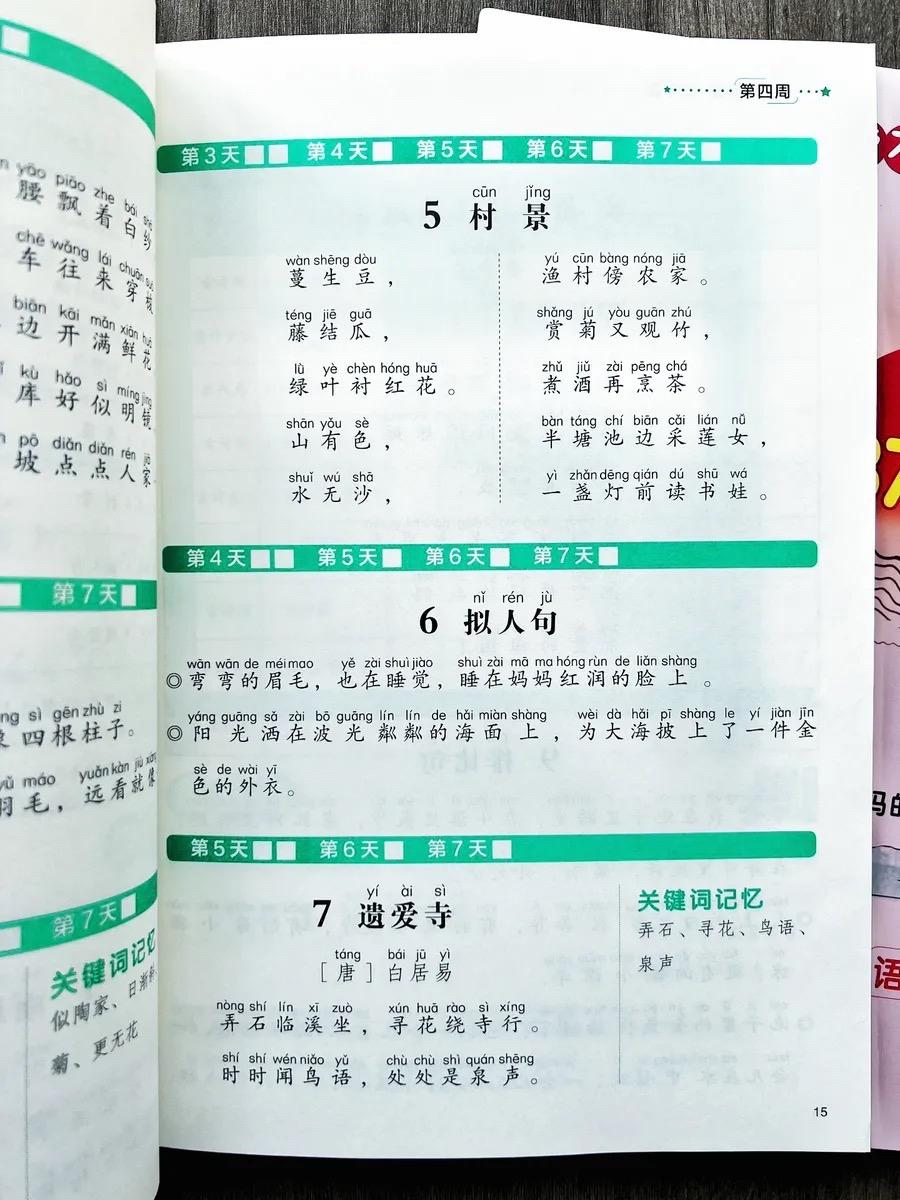 第四周
第3天 第4天 第5天 第6天 第7天
cūn jǐng
5 村景
wàn shēng dòu
蔓生豆，
téng jiē guā
藤结瓜，
lǜ yè chèn hóng huā
绿叶衬红花。
shān yǒu sè
山有色，
shuǐ wú shā
水无沙，
yú cūn bàng nóng jiā
渔村傍农家。
shǎng jú yòu guān zhú
赏菊又观竹，
zhǔ jiǔ zài pēng chá
煮酒再烹茶。
bàn táng chí biān cǎi lián nǚ
半塘池边采莲女，
yì zhǎn dēng qián dú shū wá
一盏灯前读书娃。
第4天 第5天 第6天 第7天
nǐ rén jù
6 拟人句
wān wān de méi mao yě zài shuì jiào shuì zài mā ma hóng rùn de liǎn shàng
◎弯弯的眉毛，也在睡觉，睡在妈妈红润的脸上。
yáng guāng sǎ zài bō guāng lín lín de hǎi miàn shàng wèi dà hǎi pī shàng le yí jiàn jīn
◎阳光洒在波光粼粼的海面上，为大海披上了一件金
sè de wài yī
色的外衣。
第5天 第6天 第7天
yí ài sì
7 遗爱寺
táng bái jū yì
［唐］白居易
nòng shí lín xī zuò xún huā rào sì xíng
弄石临溪坐，寻花绕寺行。
shí shí wén niǎo yǔ chù chù shì quán shēng
时时闻鸟语，处处是泉声。
关键词记忆
弄石、寻花、鸟语、
泉声
15
yāo piāo zhe bái shā
腰飘着白纱
chē wǎng lái chuān suō
车往来穿梭
biān kāi mǎn xiān huā
边开满鲜花
kù hǎo sì míng jìng
库好似明镜
pō diǎn diǎn rén jiā
坡点点人家
第7天
sì gēn zhù zi
四根柱子。
máo yuǎn kàn jiù xiàng
羽毛，远看就像
第7天
关键词记忆
似陶家、日渐斜
菊、更无花
妈的
语